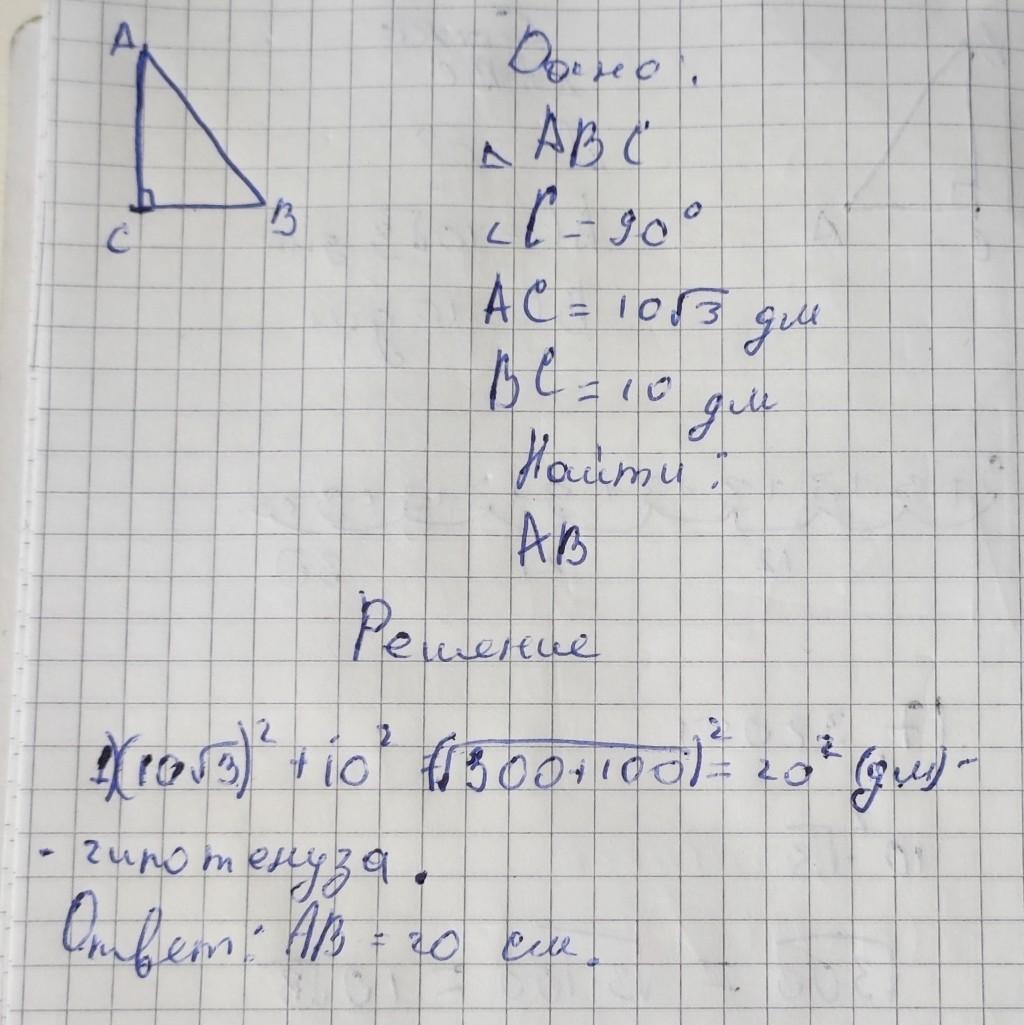 A
C
B
Дано:
△ ABC
∠C = 90°
AC = 10√3 дм
BC = 10 дм
Найти:
AB
Решение
1)(10√3)² + 10² =(√300+100)² = 20² (дм) -
- гипотенуза.
Ответ: AB = 20 см.